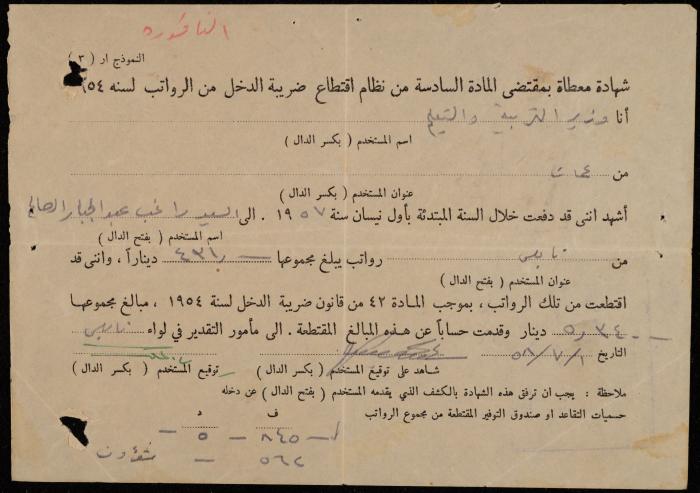 الناقوره
النموذج ار ( ٣ )
شهادة معطاة بمقتضى المادة السادسة من نظام اقتطاع ضريبة الدخل من الرواتب لسنه ١٩٥٤
أنا وزير التربية والتعليم
اسم المستخدم ( بكسر الدال )
من عمان
عنوان المستخدم ( بكسر الدال )
أشهد انى قد دفعت خلال السنة المبتدئة بأول نيسان سنة ١٩٥٧ . الى السيد راغب عبدالجبار الصالح
اسم المستخدم ( بفتح الدال )
من نابلس رواتب يبلغ مجموعها ٤٣١٫ ديناراً ، وانى قد
عنوان المستخدم ( بفتح الدال )
اقتطعت من تلك الرواتب ، بموجب المادة ٤٢ من قانون ضريبة الدخل لسنة ١٩٥٤ ، مبالغ مجموعها
٥٫٣٤٠ دينار وقدمت حساباً عن هذه المبالغ المقتطعة . الى مأمور التقدير في لواء نابلس
التاريخ ٥٨/٧/١
شاهد على توقيع المستخدم ( بكسر الدال ) توقيع المستخدم ( بكسر الدال )
ملاحظة : يجب ان ترفق هذه الشهادة بالكشف الذي يقدمه المستخدم ( بفتح الدال ) عن دخله
حسميات التقاعد او صندوق التوفير المقتطعة من مجموع الرواتب
ف د
٨٤٥ - ٥ -
٥٦٢ -